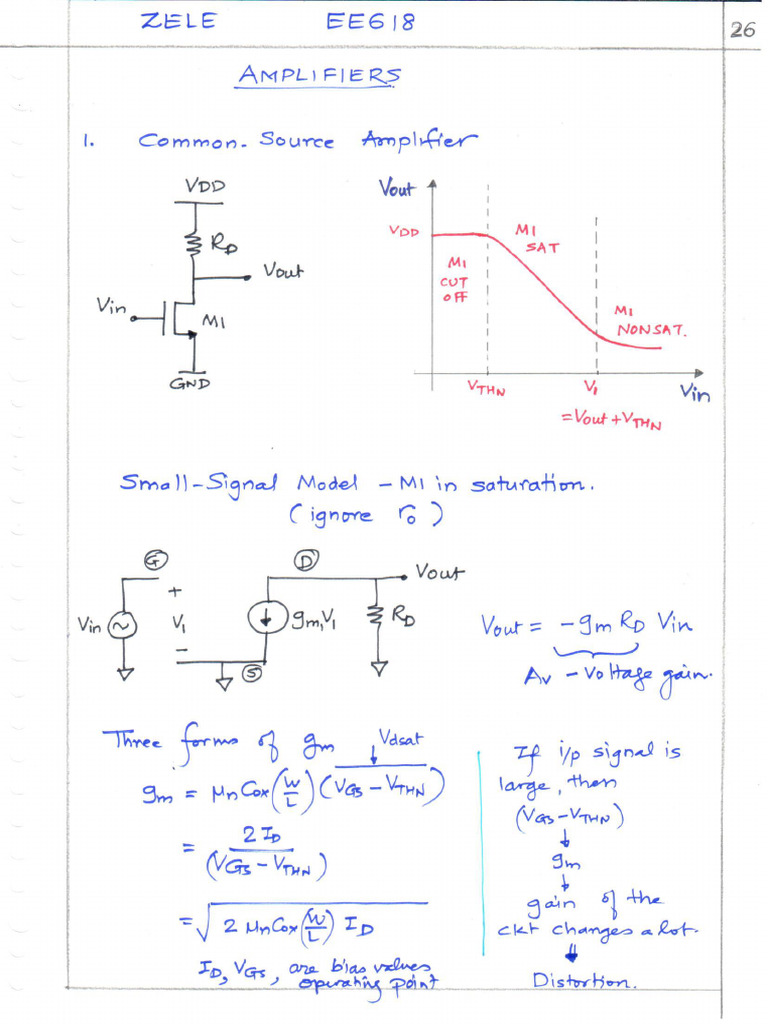 ZELE EE618
26
AMPLIFIERS
1. Common-Source Amplifier
VDD
RD
Vout
Vin
M1
GND
Vout
VDD
M1
SAT
M1
CUT
OFF
M1
NONSAT.
VTHN
V1
Vin
=Vout+VTHN
Small-Signal Model - M1 in saturation.
(ignore ro)
G
D
Vout
+
Vin
V1
gmV1
RD
-
S
Vout = -gm RD Vin
Av - Voltage gain.
Three forms of gm
Vdsat
gm = μn Cox (W/L) (VGS - VTHN)
= 2 ID / (VGS - VTHN)
= √ 2 μn Cox (W/L) ID
ID, VGS, are bias values
operating point
If i/p signal is
large, then
(VGS-VTHN)
↓
gm
↓
gain of the
ckt changes a lot.
⇓
Distortion.